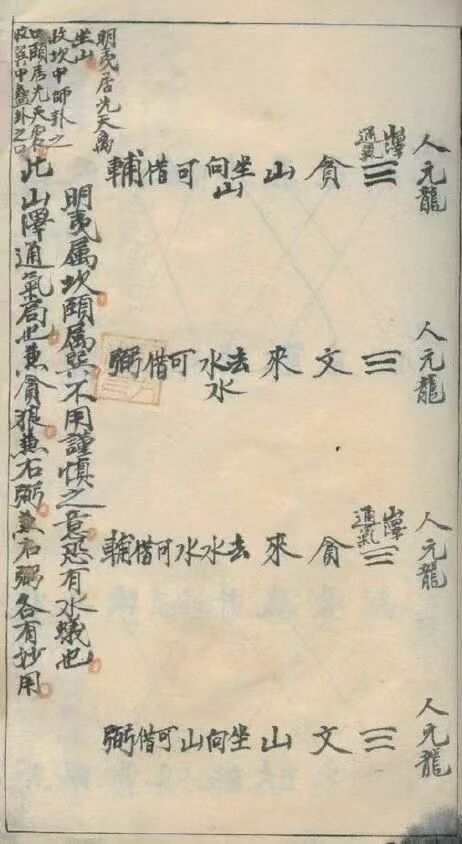 人元龍
山澤
通氣
☱
貪山坐向山可借輔
人元龍
☱
文來去水水可借弼
人元龍
山澤
通氣
貪來去水水可借輔
人元龍
文山坐向山可借弼
明夷居先天离
坐山
收坎中師卦之
口頤居先天震
收巽中蠱卦之口
明夷属坎頤属巽不用謹慎之意恐有水蟻也
此山澤通氣局也兼貪狼兼右弼兼右弼各有妙用